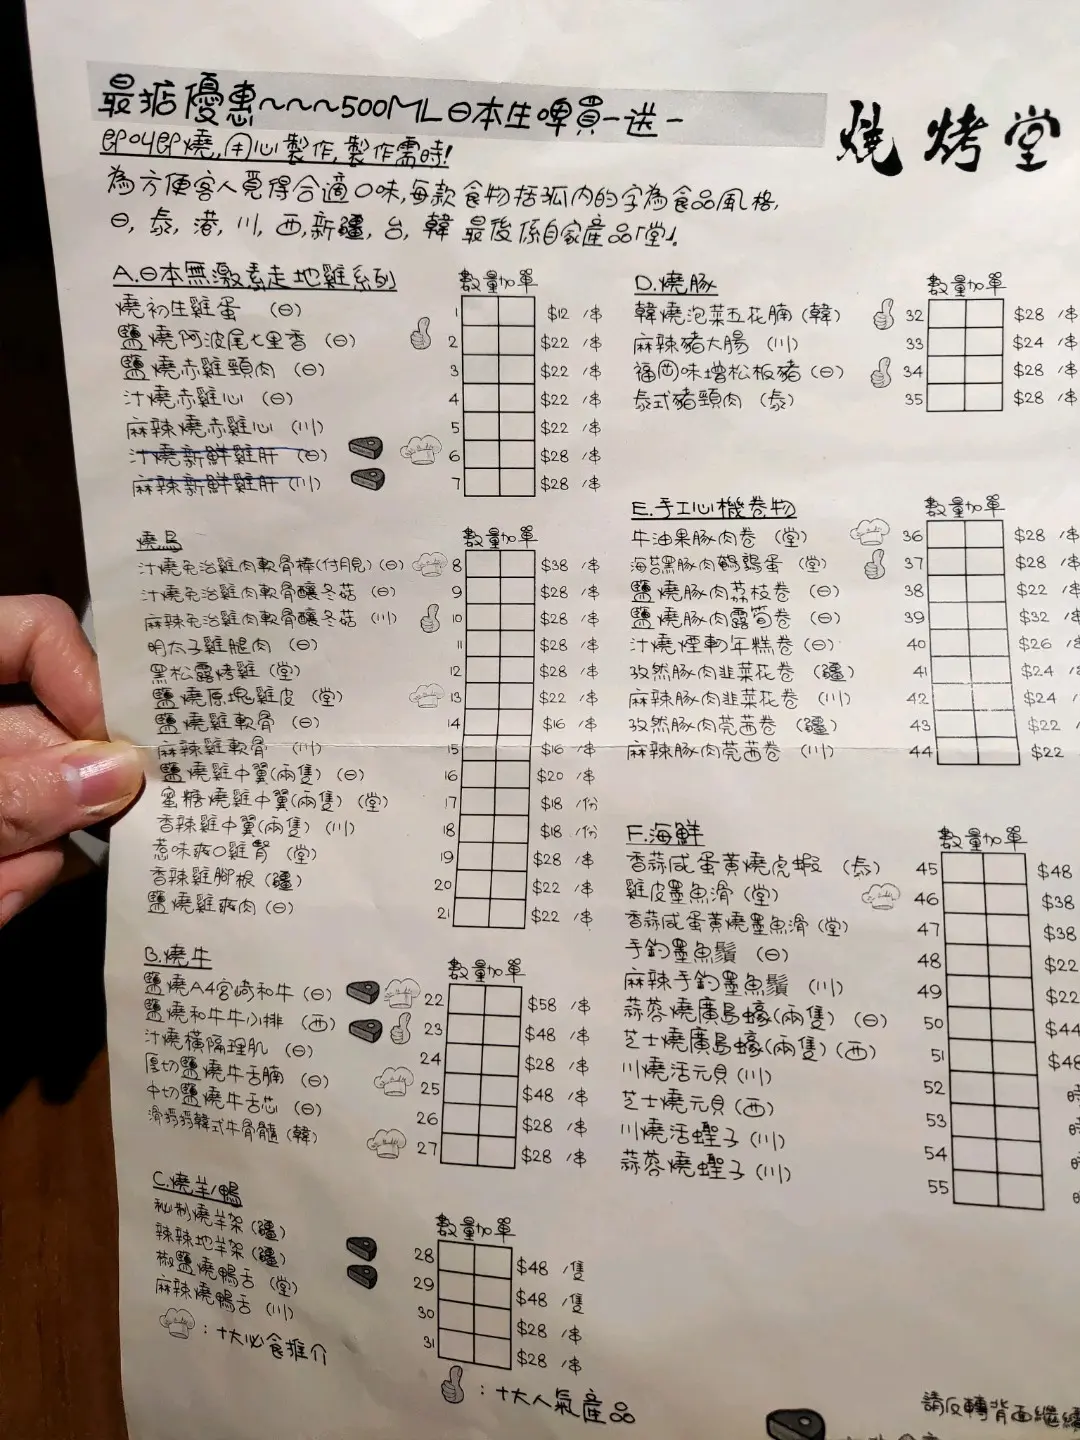 最掂優惠~~~500ML日本生啤買一送一
燒烤堂
即叫即燒,用心製作,製作需時!
為方便客人覓得合適口味,每款食物括弧內的字為食品風格,
日,泰,港,川,西,新疆,台,韓 最後係自家產品「堂」.
A.日本無激素走地雞系列 數量 加單
燒初生雞蛋 (日) 1 $12 /串
鹽燒阿波尾七里香 (日) 2 $22 /串
鹽燒赤雞頸肉 (日) 3 $22 /串
汁燒赤雞心 (日) 4 $22 /串
麻辣燒赤雞心 (川) 5 $22 /串
汁燒新鮮雞肝 (日) 6 $28 /串
麻辣新鮮雞肝 (川) 7 $28 /串
燒鳥 數量 加單
汁燒免治雞肉軟骨棒(付月見) (日) 8 $38 /串
汁燒免治雞肉軟骨釀冬菇 (日) 9 $28 /串
麻辣免治雞肉軟骨釀冬菇 (川) 10 $28 /串
明太子雞腿肉 (日) 11 $28 /串
黑松露烤雞 (堂) 12 $28 /串
鹽燒原塊雞皮 (堂) 13 $22 /串
鹽燒雞軟骨 (日) 14 $16 /串
麻辣雞軟骨 (川) 15 $16 /串
鹽燒雞中翼(兩隻) (日) 16 $20 /串
蜜糖燒雞中翼(兩隻) (堂) 17 $18 /份
香辣雞中翼(兩隻) (川) 18 $18 /份
惹味爽口雞腎 (堂) 19 $28 /串
香辣雞腳根 (疆) 20 $22 /串
鹽燒雞爽肉 (日) 21 $22 /串
B.燒牛 數量 加單
鹽燒A4宮崎和牛 (日) 22 $58 /串
鹽燒和牛牛小排 (西) 23 $48 /串
汁燒橫隔理肌 (日) 24 $28 /串
厚切鹽燒牛舌腩 (日) 25 $48 /串
中切鹽燒牛舌芯 (日) 26 $28 /串
滑捋捋韓式牛骨髓 (韓) 27 $28 /串
C.燒羊/鴨 數量 加單
秘制燒羊架 (疆) 28 $48 /隻
辣辣地羊架 (疆) 29 $48 /隻
椒鹽燒鴨舌 (堂) 30 $28 /串
麻辣燒鴨舌 (川) 31 $28 /串
:十大必食推介
:十大人氣產品
D.燒豚 數量 加單
韓燒泡菜五花腩 (韓) 32 $28 /串
麻辣豬大腸 (川) 33 $24 /串
福岡味增松板豬 (日) 34 $28 /串
泰式豬頸肉 (泰) 35 $28 /串
E.手工心機卷物 數量 加單
牛油果豚肉卷 (堂) 36 $28 /串
海苔黑豚肉鵪鶉蛋 (堂) 37 $28 /串
鹽燒豚肉荔枝卷 (日) 38 $22 /串
鹽燒豚肉露筍卷 (日) 39 $32 /串
汁燒煙鴨年糕卷 (日) 40 $26 /串
孜然豚肉韭菜花卷 (疆) 41 $24 /串
麻辣豚肉韭菜花卷 (川) 42 $24 /串
孜然豚肉芫茜卷 (疆) 43 $22 /串
麻辣豚肉芫茜卷 (川) 44 $22
F.海鮮 數量 加單
香蒜咸蛋黃燒虎蝦 (泰) 45 $48
雞皮墨魚滑 (堂) 46 $38
香蒜咸蛋黃燒墨魚滑 (堂) 47 $38
手釣墨魚鬚 (日) 48 $22
麻辣手釣墨魚鬚 (川) 49 $22
蒜蓉燒廣島蠔(兩隻) (日) 50 $44
芝士燒廣島蠔(兩隻) (西) 51 $48
川燒活元貝 (川) 52 時
芝士燒元貝 (西) 53 時
川燒活蟶子 (川) 54 時
蒜蓉燒蟶子 (川) 55 時
請反轉背面繼續